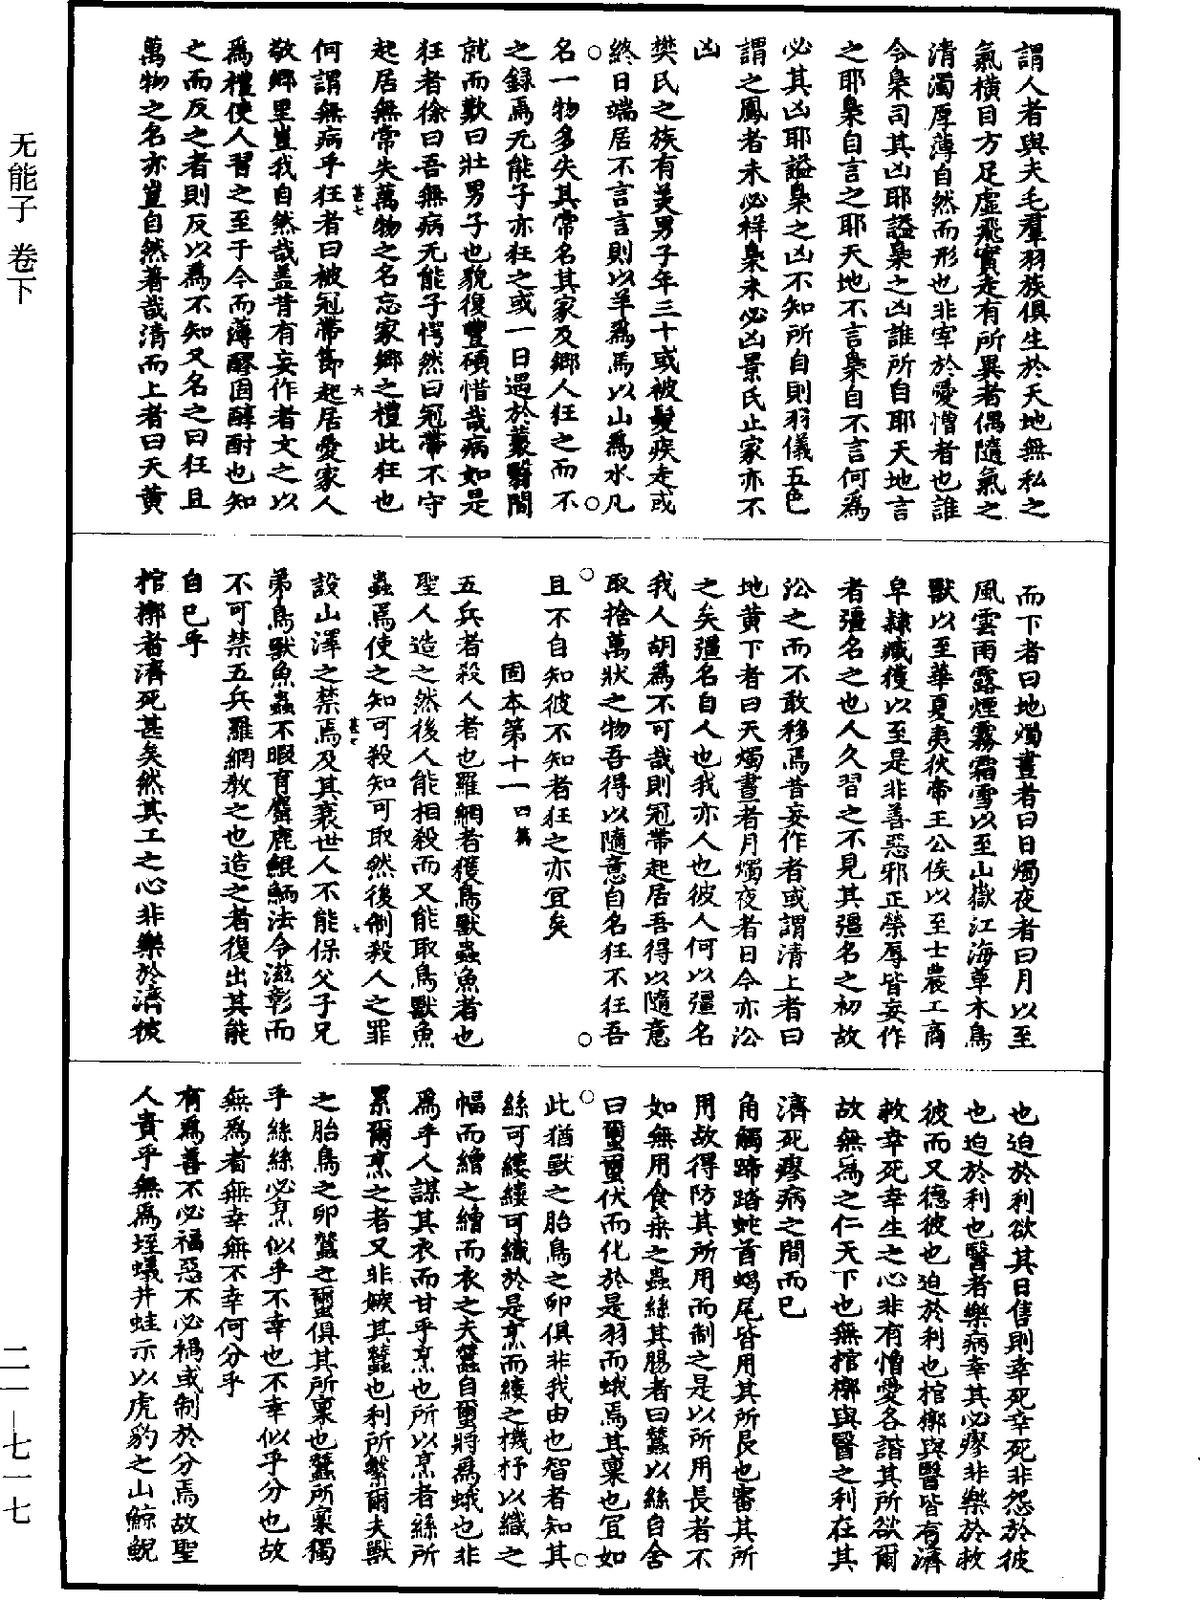 无能子 卷下
謂人者與夫毛羣羽族俱生於天地無私之
氣橫目方足虛飛實走有所異者偶隨氣之
清濁厚薄自然而形也非宰於愛憎者也誰
令梟司其凶耶謚梟之凶誰所自耶天地言
之耶梟自言之耶天地不言梟自不言何為
必其凶耶謚梟之凶不知所自則羽儀五色
謂之鳳者未必祥梟未必凶景氏止家亦不
凶
樊氏之族有美男子年三十或被髮疾走或
終日端居不言言則以羊為馬以山為水凡
名一物多失其常名其家及鄉人狂之而不
之錄焉无能子亦狂之或一日遇於叢翳間
就而歎曰壯男子也貌復豐碩惜哉病如是
狂者徐曰吾無病无能子愕然曰冠帶不守
起居無常失萬物之名忘家鄉之禮此狂也
何謂無病乎狂者曰被冠帶節起居愛家人
敬鄉里豈我自然哉蓋昔有妄作者文之以
為禮使人習之至于今而薄醪固醇酎也知
之而反之者則反以為不知又名之曰狂且
萬物之名亦豈自然著哉清而上者曰天黃
而下者曰地燭晝者曰日燭夜者曰月以至
風雲雨露煙霧霜雪以至山嶽江海草木鳥
獸以至華夏夷狄帝王公侯以至士農工商
皁隸臧獲以至是非善惡邪正榮辱皆妄作
者彊名之也人久習之不見其彊名之初故
㳂之而不敢移焉昔妄作者或謂清上者曰
地黃下者曰天燭晝者月燭夜者日今亦㳂
之矣彊名自人也我亦人也彼人何以彊名
我人胡為不可哉則冠帶起居吾得以隨意
取捨萬狀之物吾得以隨意自名狂不狂吾
且不自知彼不知者狂之亦宜矣
固本第十一四篇
五兵者殺人者也羅網者獲鳥獸蟲魚者也
聖人造之然後人能相殺而又能取鳥獸魚
蟲焉使之知可殺知可取然後制殺人之罪
設山澤之禁焉及其衰世人不能保父子兄
弟鳥獸魚蟲不暇育麛鹿鯤鮞法令滋彰而
不可禁五兵羅網教之也造之者復出其能
自已乎
棺槨者濟死甚矣然其工之心非樂於濟彼
也迫於利欲其日售則幸死幸死非怨於彼
也迫於利也醫者樂病幸其必瘳非樂於救
彼而又德彼也迫於利也棺槨與醫皆有濟
救幸死幸生之心非有憎愛各諧其所欲爾
故無為之仁天下也無棺槨與醫之利在其
濟死瘳病之間而已
角觸蹄踏蛇首蝎尾皆用其所長也審其所
用故得防其所用而制之是以所用長者不
如無用食桑之蟲絲其腸者曰蠶以絲自舍
曰蠒蠒伏而化於是羽而蛾焉其稟也宜如
此猶獸之胎鳥之卵俱非我由也智者知其
絲可縷縷可織於是烹而縷之機杼以織之
幅而繒之繒而衣之夫蠶自蠒將為蛾也非
為乎人謀其衣而甘乎烹也所以烹者絲所
累爾烹之者又非嫉其蠶也利所繫爾夫獸
之胎鳥之卵蠶之蠒俱其所稟也蠶所稟獨
乎絲絲必烹似乎不幸也不幸似乎分也故
無為者無幸無不幸何分乎
有為善不必福惡不必禍或制於分焉故聖
人貴乎無為垤蟻井蛙示以虎豹之山鯨鯢
二一—七一七